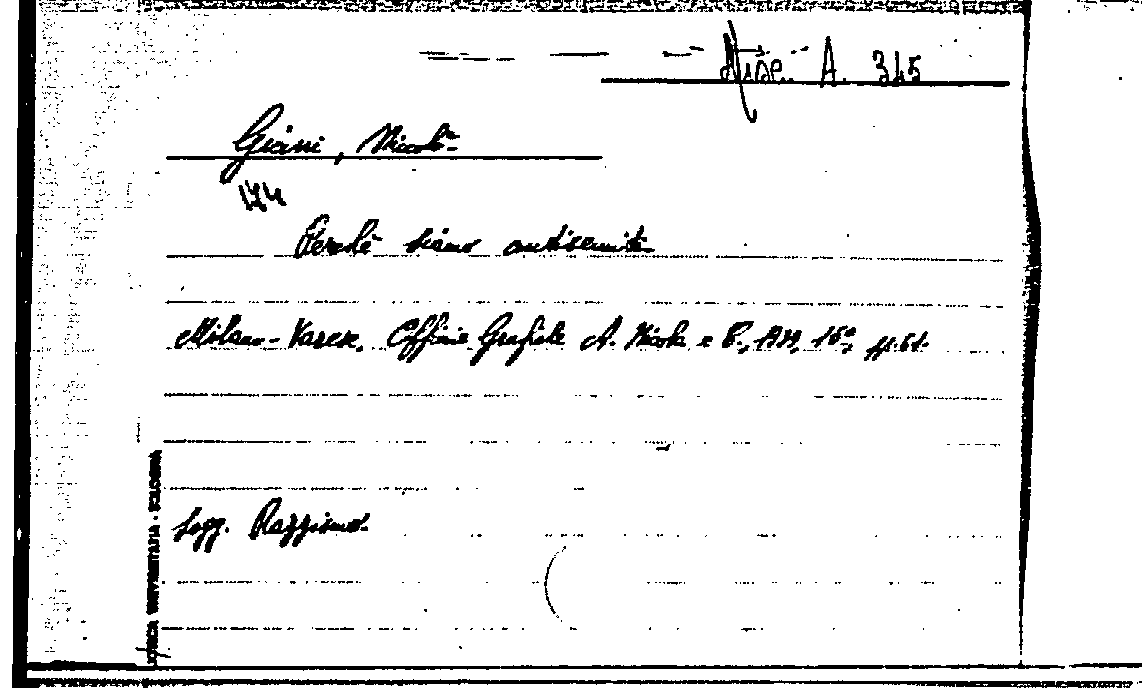 Misc. A. 345
Giani, Nicolò
Perchè siamo antisemiti
Milano-Varese, Officine Grafiche A. Nicola e C., 1939, 16°, pp. 61.
Sogg. Razzismo.
UNIVERSITARIA - BOLOGNA